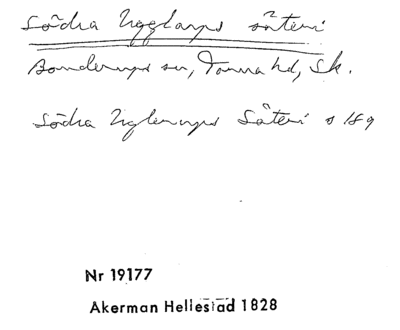 Södra Ugglarps säteri
Bonderups sn, Torna hd, Sk.
Södra Uglerups Säteri s 189
Nr 19177
Akerman Hellestad 1828